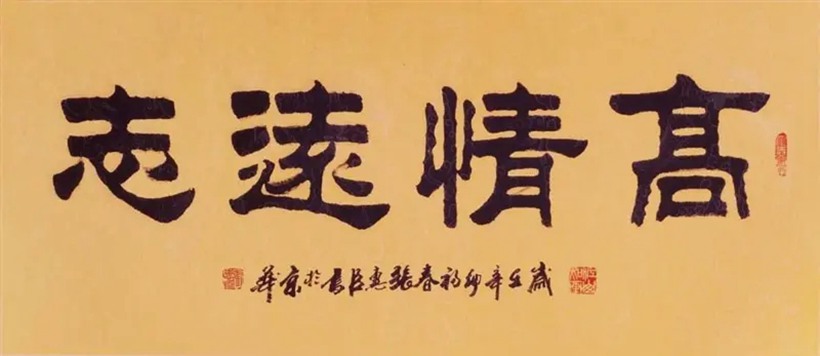 高情遠志
歲在辛卯初春張惠臣書於京華